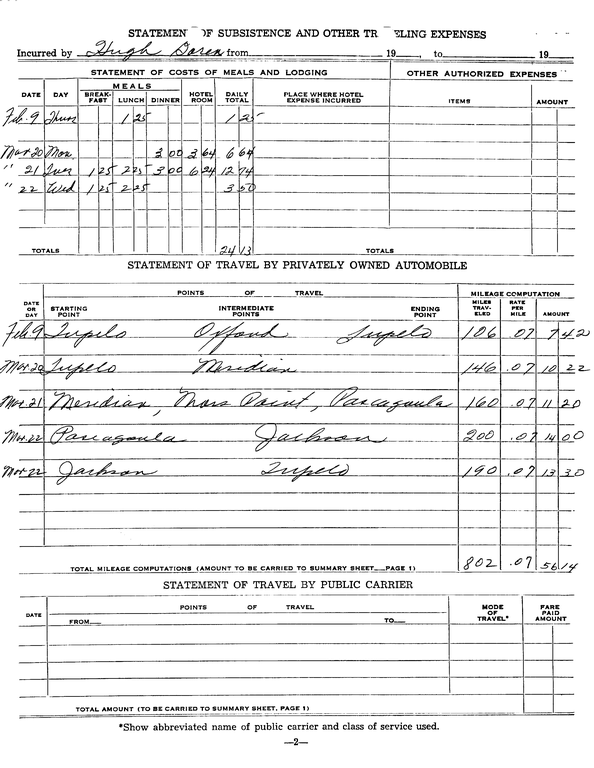 STATEMEN OF SUBSISTENCE AND OTHER TR ELING EXPENSES
Incurred by Hugh Doren from 19 , to 19
STATEMENT OF COSTS OF MEALS AND LODGING OTHER AUTHORIZED EXPENSES
DATE DAY MEALS BREAK-FAST LUNCH DINNER HOTEL ROOM DAILY TOTAL PLACE WHERE HOTEL EXPENSE INCURRED ITEMS AMOUNT
Feb. 9 Thur 1 25 1 25
Mar 20 Mon. 3 00 3 64 6 64
" 21 Tues 1 25 2 25 3 00 6 24 12 74
" 22 Wed 1 25 2 25 3 50
TOTALS 24 13 TOTALS
STATEMENT OF TRAVEL BY PRIVATELY OWNED AUTOMOBILE
POINTS OF TRAVEL MILEAGE COMPUTATION
DATE OR DAY STARTING POINT INTERMEDIATE POINTS ENDING POINT MILES TRAV-ELED RATE PER MILE AMOUNT
Feb. 9 Tupelo Oxford Tupelo 106 .07 7 42
Mar. 20 Tupelo Meridian 146 .07 10 22
Mar. 21 Meridian, Moss Point, Pascagoula 160 .07 11 20
Mar. 22 Pascagoula Jackson 200 .07 14 00
Mar. 22 Jackson Tupelo 190 .07 13 30
TOTAL MILEAGE COMPUTATIONS (AMOUNT TO BE CARRIED TO SUMMARY SHEET PAGE 1) 802 .07 56 14
STATEMENT OF TRAVEL BY PUBLIC CARRIER
DATE POINTS OF TRAVEL MODE OF TRAVEL* FARE PAID AMOUNT
FROM TO
TOTAL AMOUNT (TO BE CARRIED TO SUMMARY SHEET, PAGE 1)
*Show abbreviated name of public carrier and class of service used.
—2—